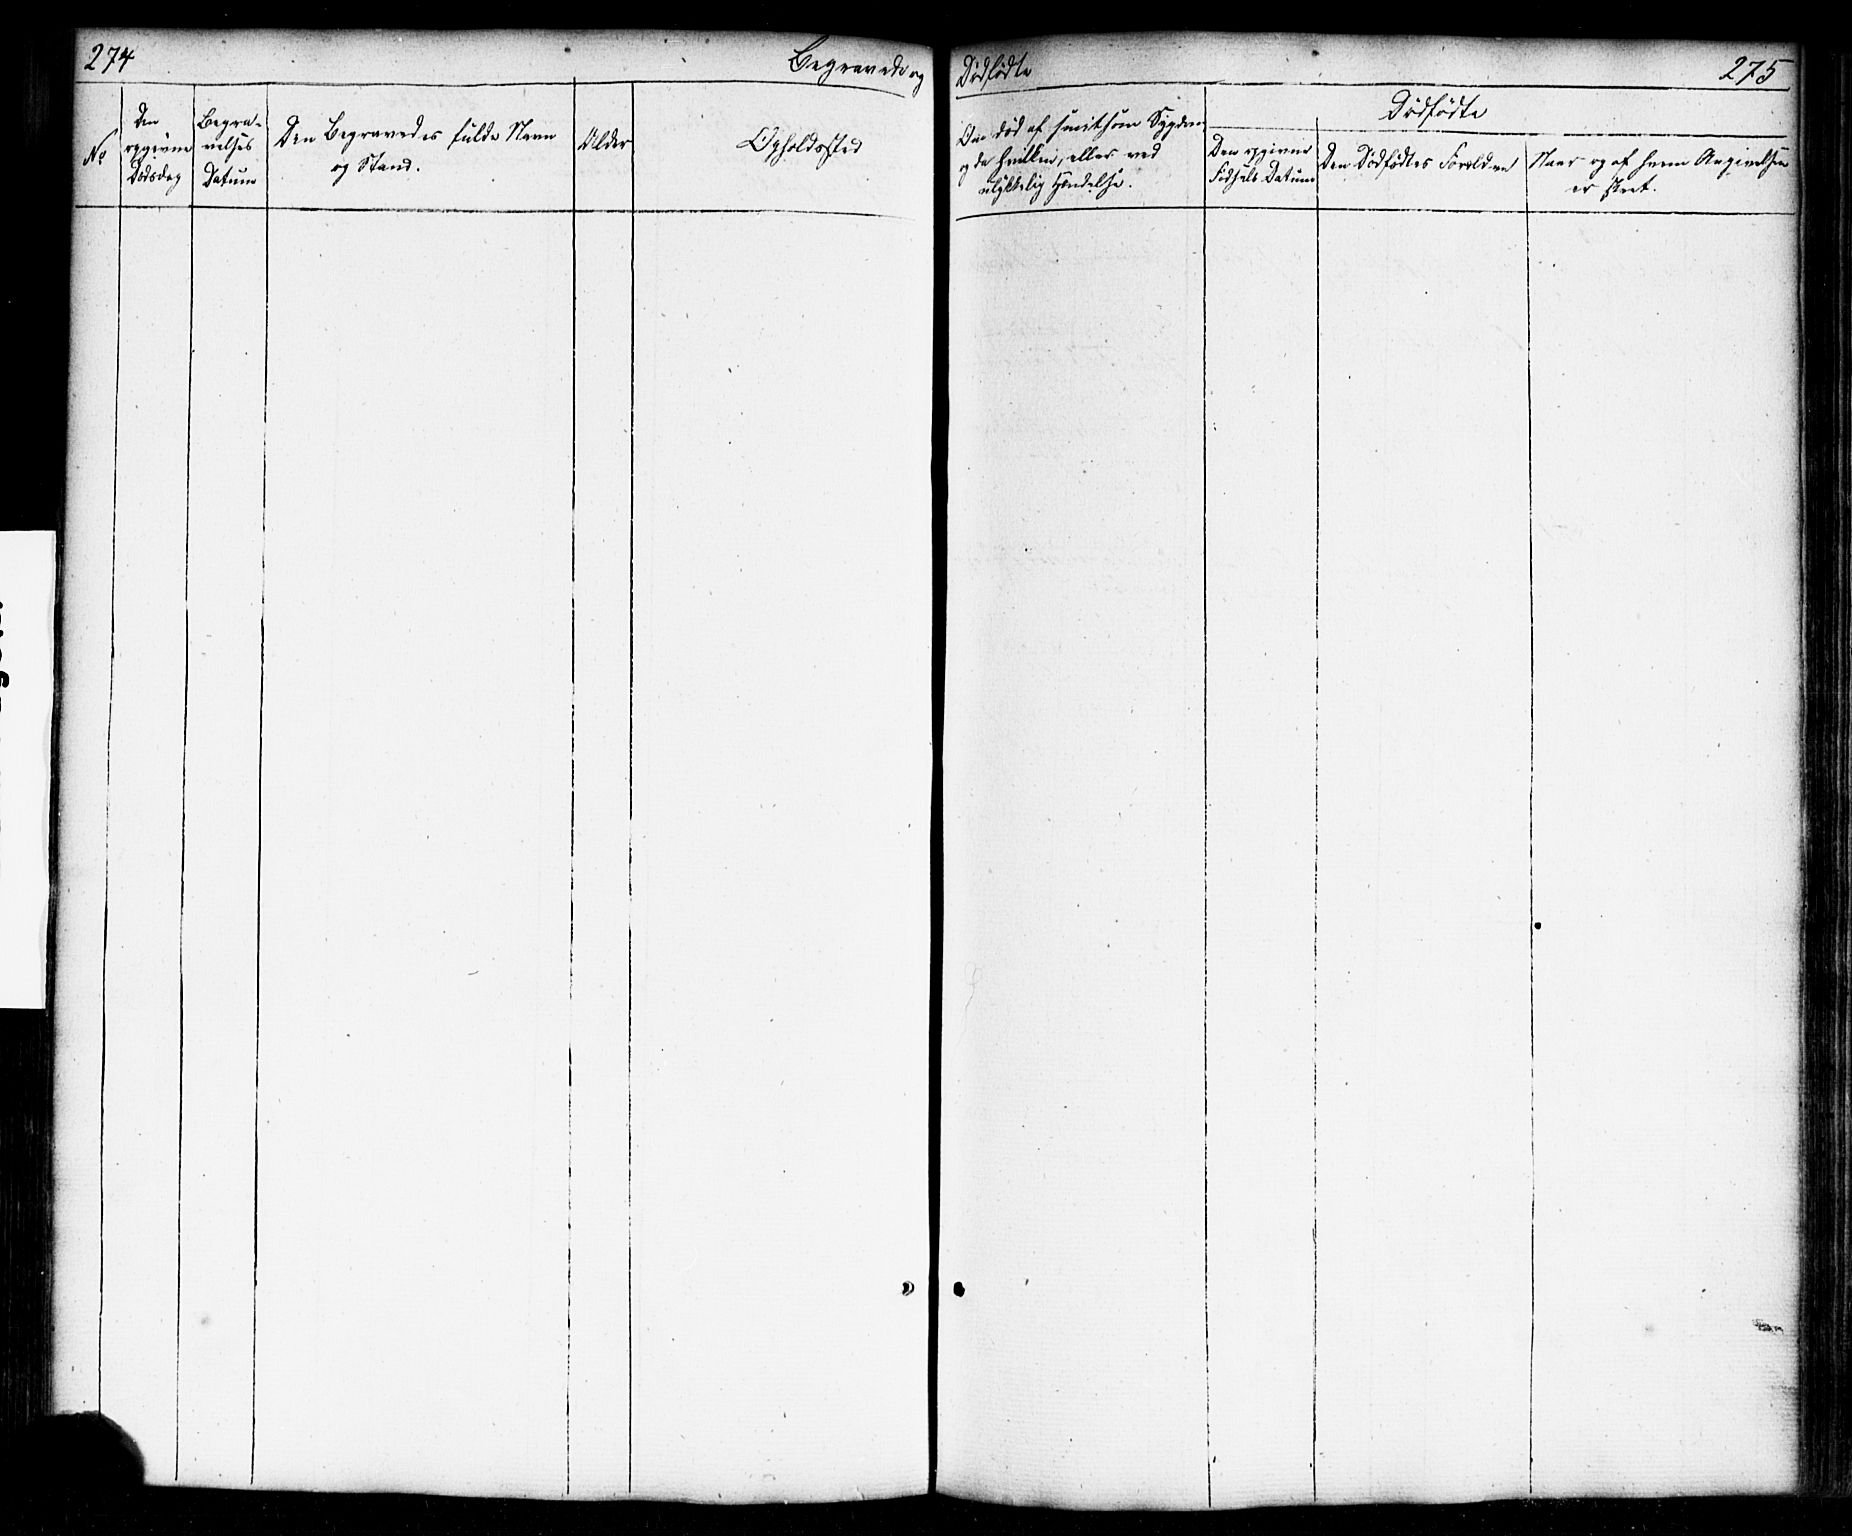 274
Begravede og
No
Den
opgivne
Dödsdag
Begra-
velses
Datum
Den Begravedes fulde Navn
og Stand.
Alder
Opholdssted
Dödfödte
275
Om död af smitsom Sygdom
og da hvilken, eller ved
ulykkelig Hændelse.
Dödfödte
Den opgivne
Födsels Datum
Den Dödfödtes Forældre
Naar og af hvem Angivelsen
er skeet.